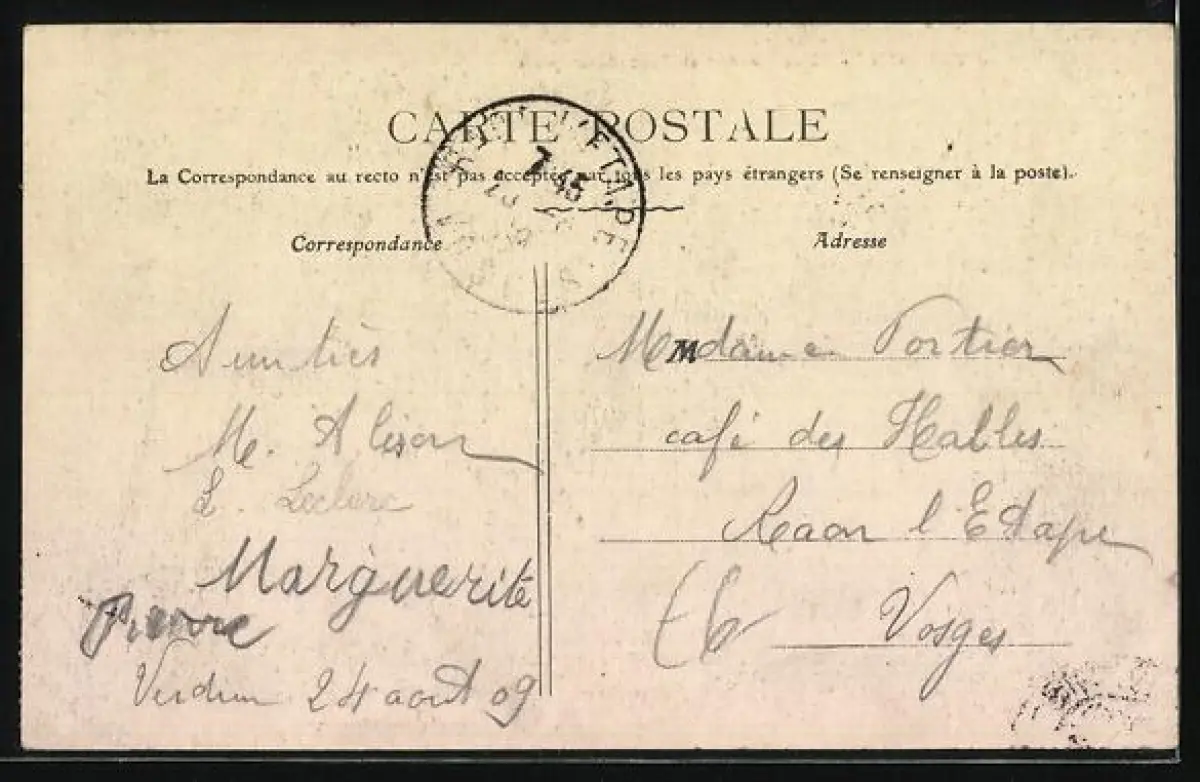 CARTE POSTALE
La Correspondance au recto n'est pas acceptée par tous les pays étrangers (Se renseigner à la poste).
Correspondance
Adresse
M. Alison
L. Leclerc
Marguerite
Pierre
Verdun 24 aout 09
Madame Portier
café des Halles
Raon l'Etape
Vosges
7 45